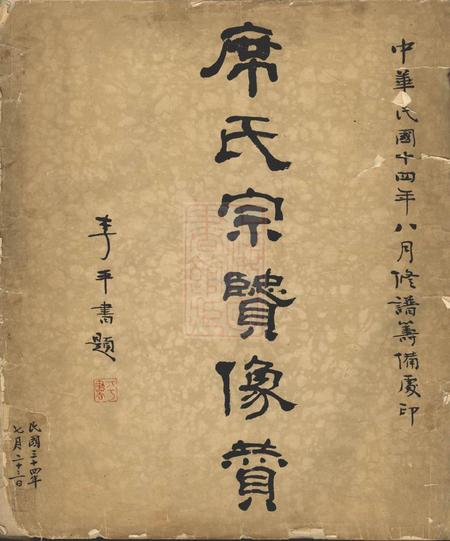 中華民國十四年八月修譜籌備處印
席氏宗牘像贊
李平書題
民國三十四年
七月二十三日